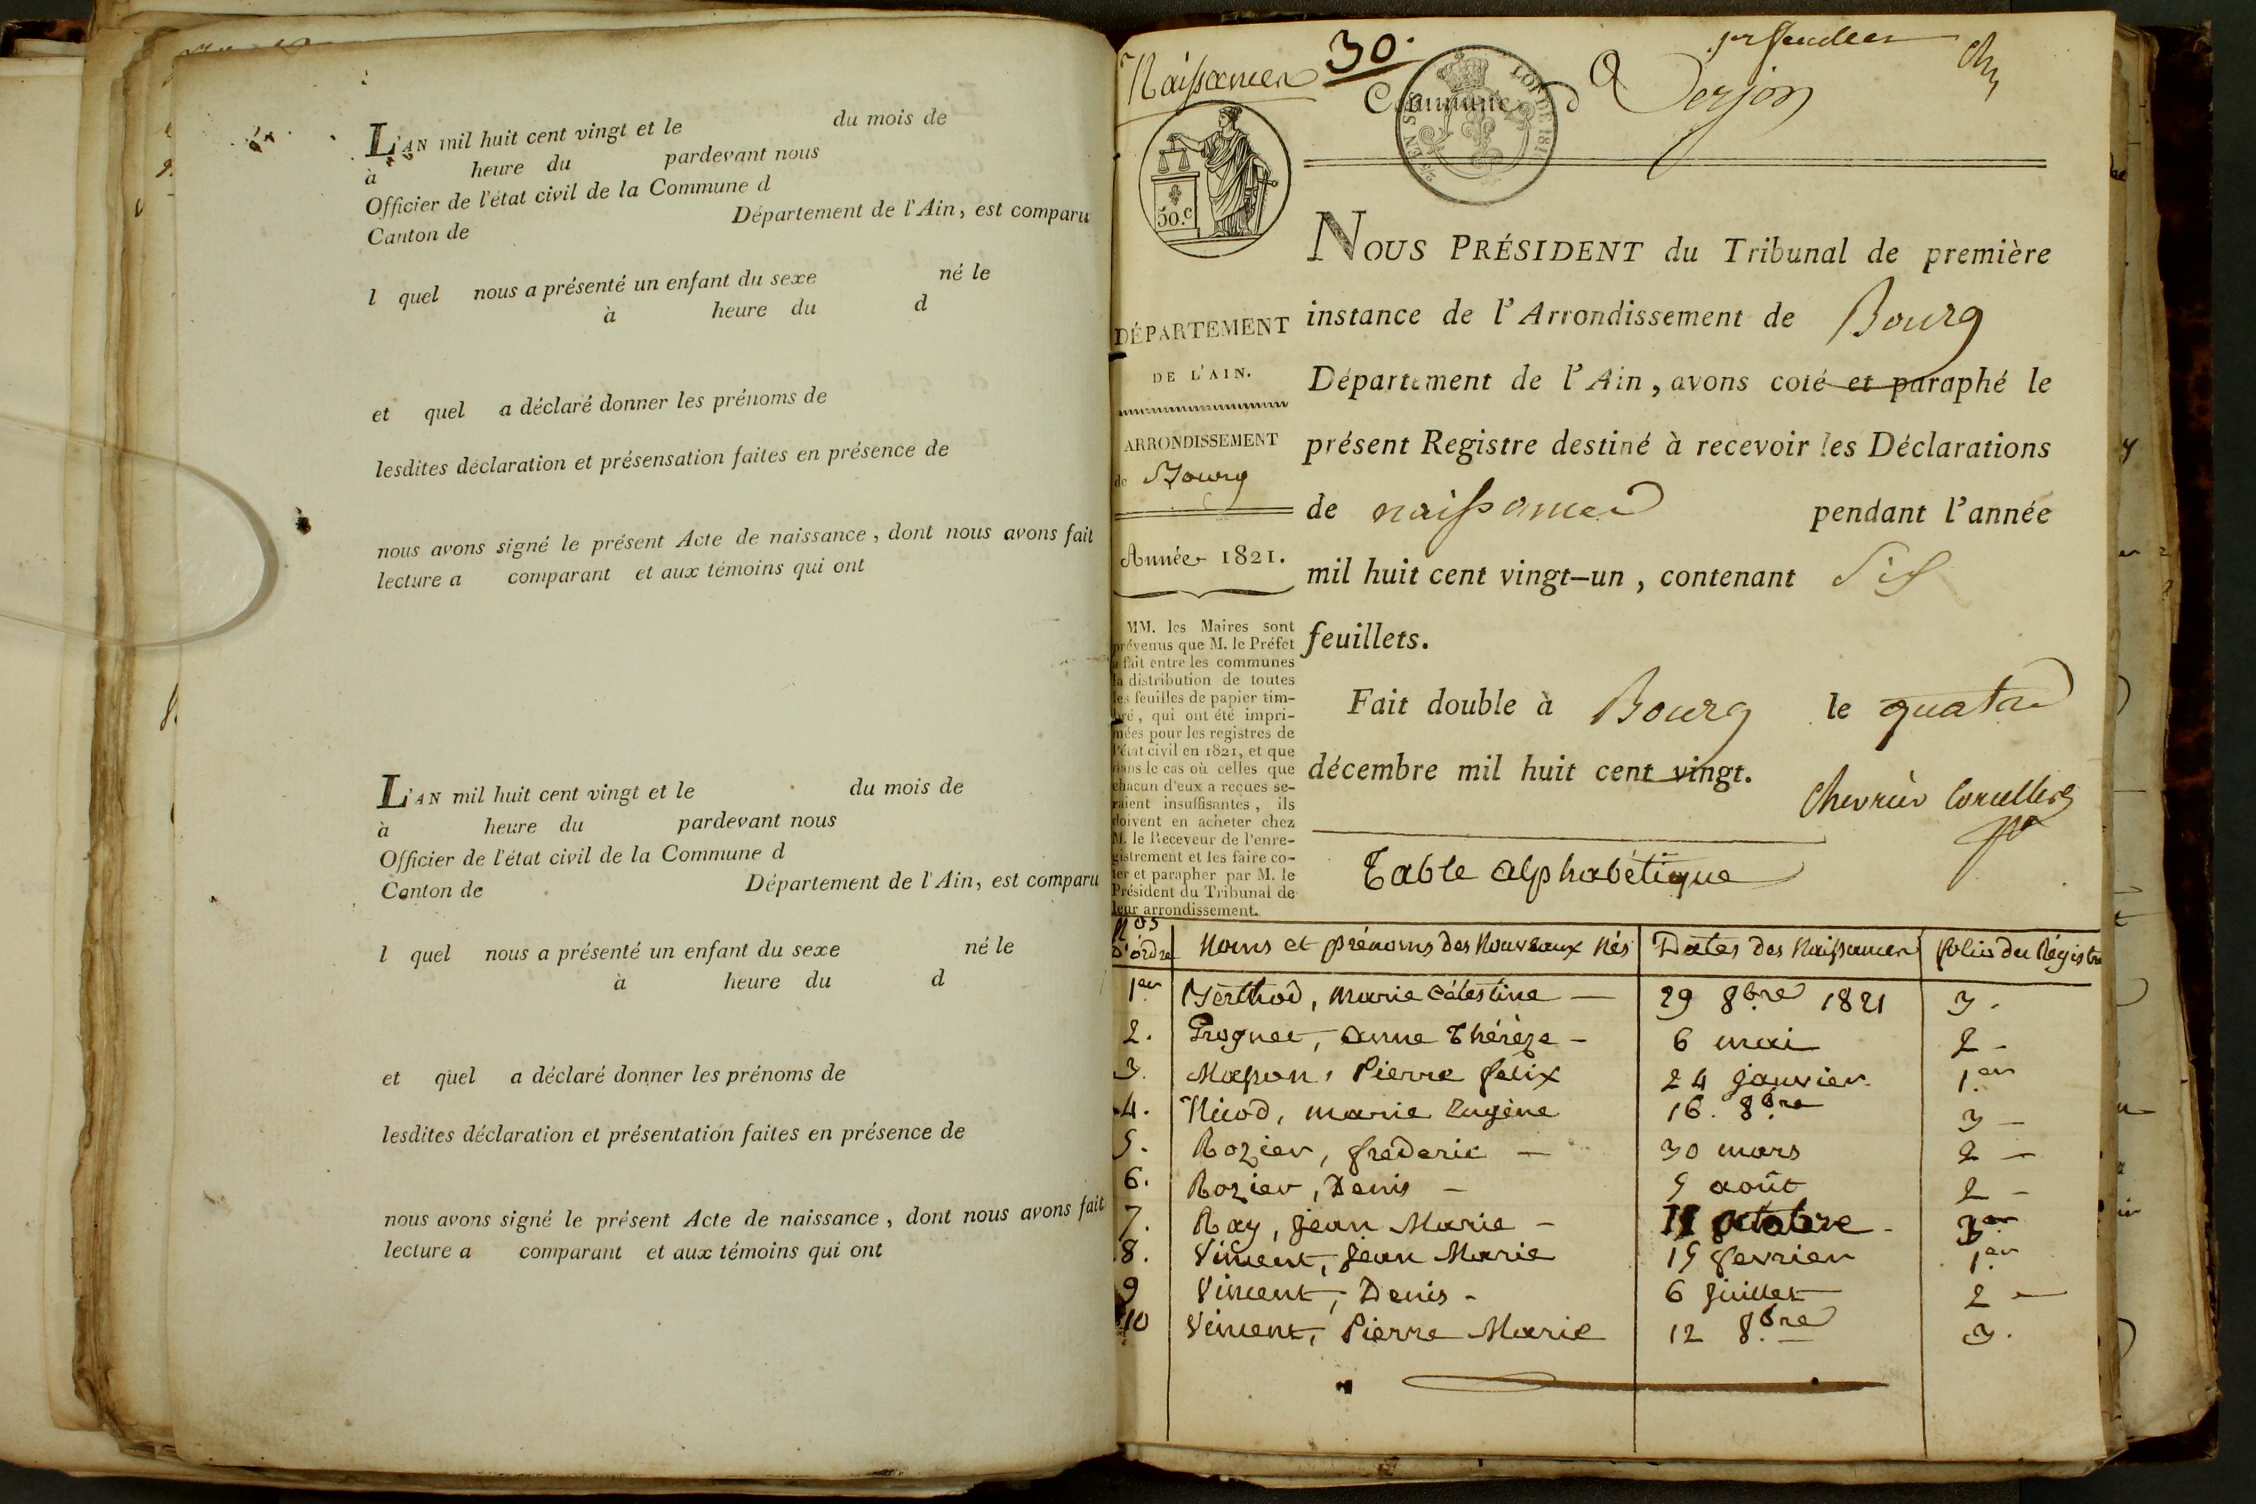 L'AN mil huit cent vingt et le du mois de
à heure du pardevant nous
Officier de l'état civil de la Commune d
Canton de Département de l'Ain, est comparu
l quel nous a présenté un enfant du sexe né le
à heure du d
et quel a déclaré donner les prénoms de
lesdites déclaration et présensation faites en présence de
nous avons signé le présent Acte de naissance, dont nous avons fait
lecture a comparant et aux témoins qui ont
L'AN mil huit cent vingt et le du mois de
à heure du pardevant nous
Officier de l'état civil de la Commune d
Canton de Département de l'Ain, est comparu
l quel nous a présenté un enfant du sexe né le
à heure du d
et quel a déclaré donner les prénoms de
lesdites déclaration et présentation faites en présence de
nous avons signé le présent Acte de naissance, dont nous avons fait
lecture a comparant et aux témoins qui ont
Naissances 30.
1er feuillet
Commune d
50.c
DÉPARTEMENT
DE L'AIN.
ARRONDISSEMENT
de Bourg
Année 1821.
MM. les Maires sont
prévenus que M. le Préfet
a fait entre les communes
la distribution de toutes
les feuilles de papier tim-
bré, qui ont été impri-
mées pour les registres de
l'état civil en 1821, et que
dans le cas où celles que
chacun d'eux a reçues se-
raient insuffisantes, ils
doivent en acheter chez
M. le Receveur de l'enre-
gistrement et les faire co-
ter et parapher par M. le
Président du Tribunal de
leur arrondissement.
NOUS PRÉSIDENT du Tribunal de première
instance de l'Arrondissement de Bourg
Département de l'Ain, avons coté et paraphé le
présent Registre destiné à recevoir les Déclarations
de naissances pendant l'année
mil huit cent vingt-un, contenant Six
feuillets.
Fait double à Bourg le quatre
décembre mil huit cent vingt.
Chevrier Corcelles
Table alphabétique
Nos d'ordre Noms et prénoms des Nouveaux Nés Dates des Naissances folio du Régistre
1er Berthod, Marie Célestine — 29 8bre 1821 3.
2. Grognet, Anne Thérèze - 6 mai 2 -
3. Masson, Pierre felix 24 janvier 1.er
4. Nicod, marie Eugène 16. 8bre 3 —
5. Rozier, frederic — 30 mars 2 —
6. Rozier, Denis - 5 août 2 -
7. Ray, jean Marie - 11 octobre - 3
8. Vincent, jean Marie 15 fevrier 1.er
9 Vincent, Denis - 6 juillet 2 —
10 Vincent, Pierre Marie 12 8bre 3.